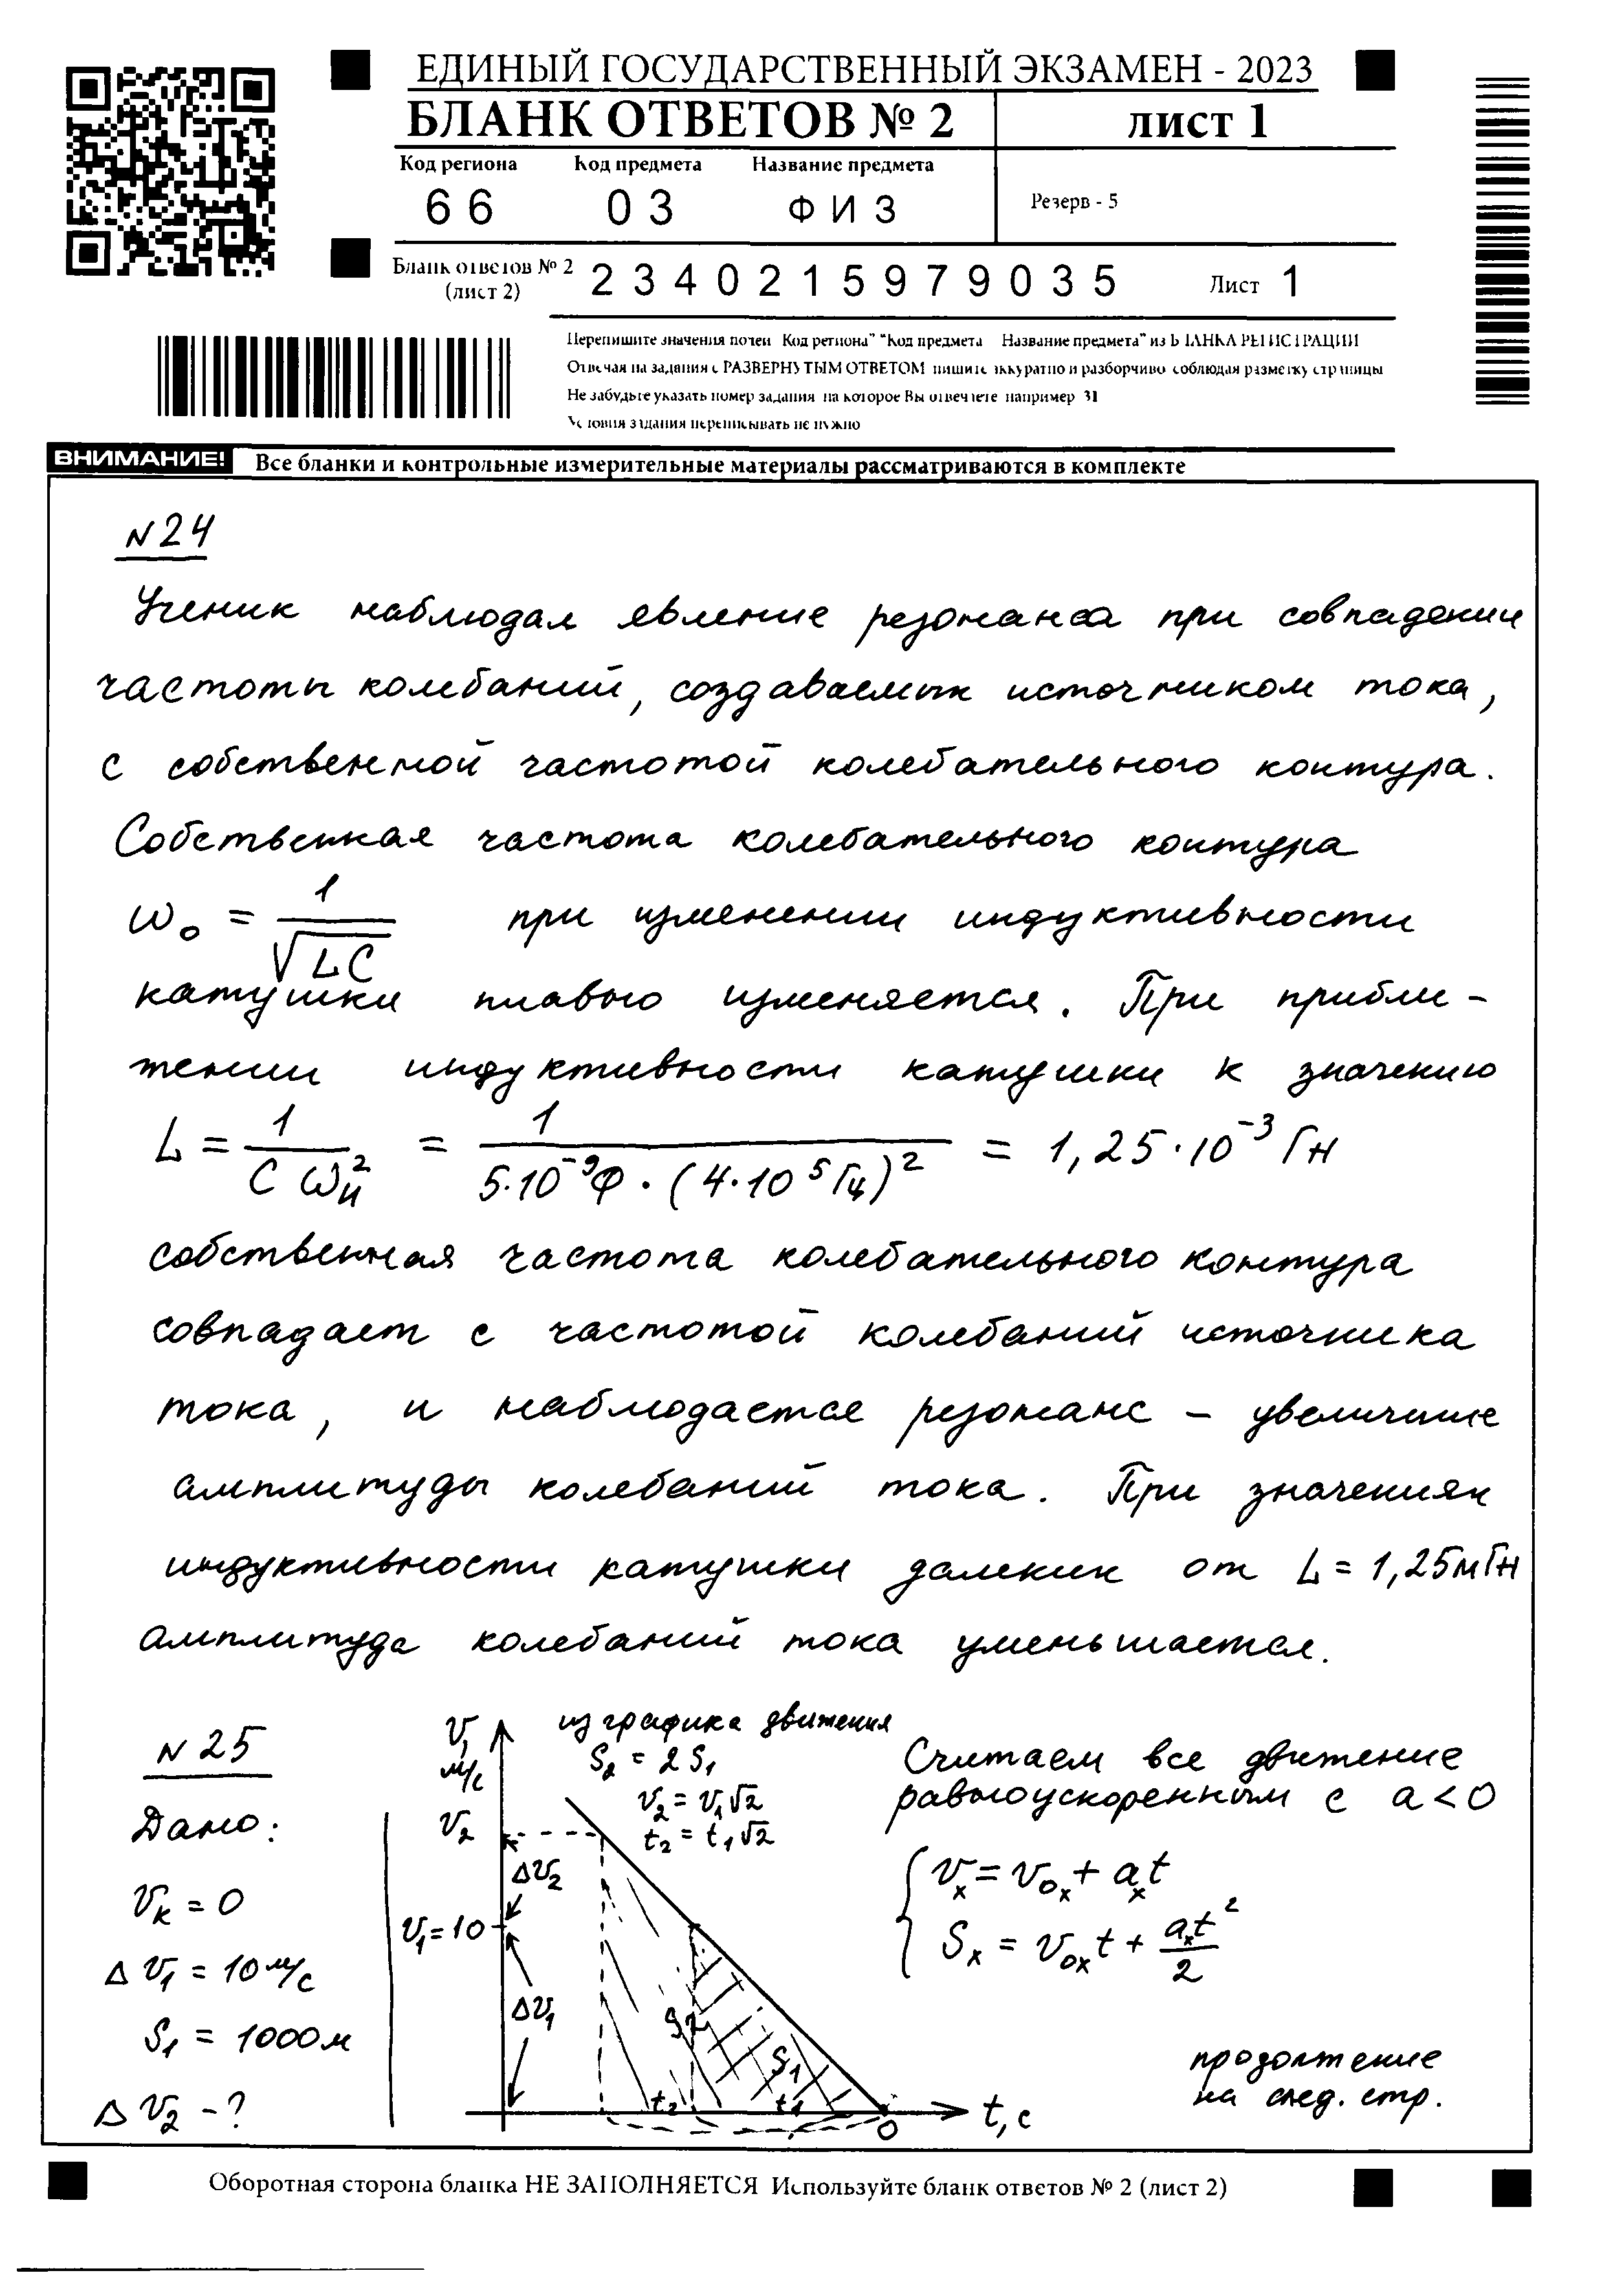 ЕДИНЫЙ ГОСУДАРСТВЕННЫЙ ЭКЗАМЕН - 2023
БЛАНК ОТВЕТОВ № 2
ЛИСТ 1
Код региона Код предмета Название предмета
66 03 ФИЗ
Резерв - 5
Бланк ответов № 2
(лист 2)
2340215979035
Лист 1
Перепишите значения полей "Код региона" "Код предмета" "Название предмета" из БЛАНКА РЕГИСТРАЦИИ
Отвечая на задания с РАЗВЕРНУТЫМ ОТВЕТОМ пишите аккуратно и разборчиво соблюдая разметку страницы
Не забудьте указать номер задания на которое Вы отвечаете например 31
Условия задания переписывать не нужно
ВНИМАНИЕ! Все бланки и контрольные измерительные материалы рассматриваются в комплекте
N24
Ученик наблюдал явление резонанса при совпадении
частоты колебаний, создаваемых источником тока,
с собственной частотой колебательного контура.
Собственная частота колебательного контура
ω₀ = 1/√LC при изменении индуктивности
катушки плавно изменяется. При прибли-
жении индуктивности катушки к значению
L = 1/(C ωи²) = 1/(5·10⁻⁹Ф · (4·10⁵Гц)²) = 1,25·10⁻³ Гн
собственная частота колебательного контура
совпадает с частотой колебаний источника
тока, и наблюдается резонанс – увеличение
амплитуды колебаний тока. При значениях
индуктивности катушки далеких от L = 1,25мГн
амплитуда колебаний тока уменьшается.
N 25
Дано:
Vк = 0
Δ V₁ = 10 м/с
S₁ = 1000 м
Δ V₂ - ?
V, м/с
V₂
ΔV₂
V₁=10
ΔV₁
S₂
S₁
t₂
t₁
0
t, с
из графика движения
S₂ = 2 S₁
V₂ = V₁√2
t₂ = t₁√2
Считаем все движение
равноускоренным с a < 0
Vₓ = V₀ₓ + aₓt
Sₓ = V₀ₓt + aₓt²/2
продолжение
на след. стр.
Оборотная сторона бланка НЕ ЗАПОЛНЯЕТСЯ Используйте бланк ответов № 2 (лист 2)